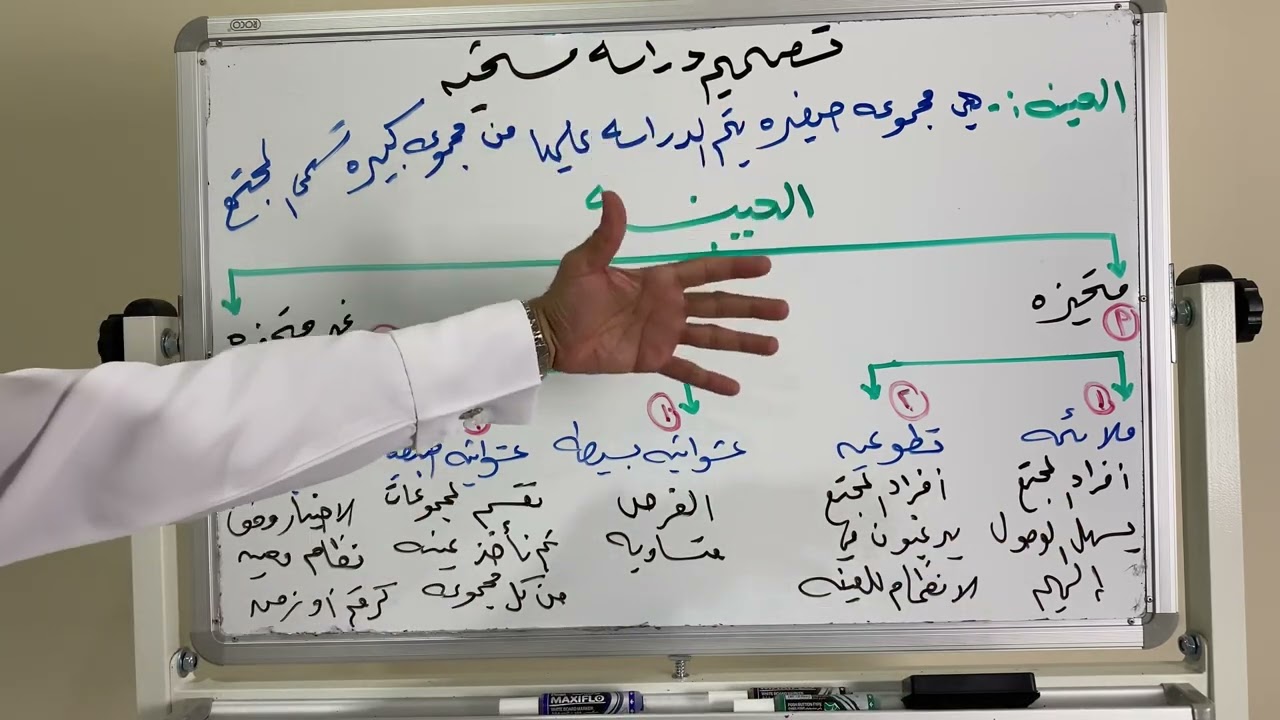 تصميم دراسة مسحيه
العينه :- هي مجموعه صغيره يتم الدراسه عليها من مجموعه كبيره تسمى المجتمع
العينه
متحيزه
غير متحيزه
٢
١
ملائمه
أفراد المجتمع
يسهل الوصول
إليهم
٢
تطوعيه
أفراد المجتمع
يرغبون في
الانظمام للعينه
١
عشوائيه بسيطه
الفرص
متساويه
عشوائيه
تقسم لمجموعات
ثم نأخذ عينه
من كل مجموعه
الاختيار وفق
نظام معين
كرقم أو زمن
ROCO
MAXIFLO
WHITE BOARD MARKER